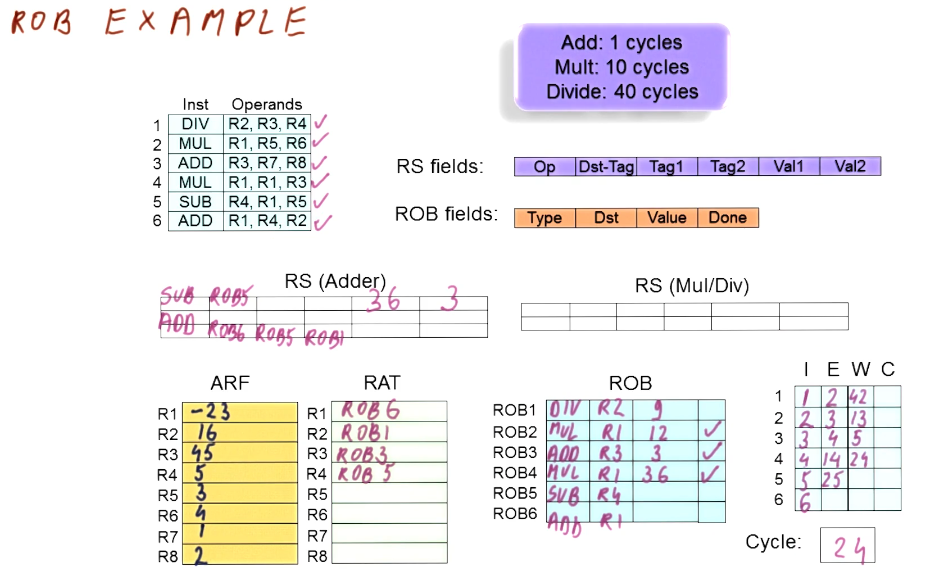 ROB EXAMPLE
Add: 1 cycles
Mult: 10 cycles
Divide: 40 cycles
Inst Operands
1 DIV R2, R3, R4 ✓
2 MUL R1, R5, R6 ✓
3 ADD R3, R7, R8 ✓
4 MUL R1, R1, R3 ✓
5 SUB R4, R1, R5 ✓
6 ADD R1, R4, R2 ✓
RS fields: Op Dst-Tag Tag1 Tag2 Val1 Val2
ROB fields: Type Dst Value Done
RS (Adder)
SUB ROB5 36 3
ADD ROB6 ROB5 ROB1
RS (Mul/Div)
ARF
R1 -23
R2 16
R3 45
R4 5
R5 3
R6 4
R7 1
R8 2
RAT
R1 ROB6
R2 ROB1
R3 ROB3
R4 ROB5
R5
R6
R7
R8
ROB
ROB1 DIV R2 9
ROB2 MUL R1 12 ✓
ROB3 ADD R3 3 ✓
ROB4 MUL R1 36 ✓
ROB5 SUB R4
ROB6 ADD R1
I E W C
1 1 2 42
2 2 3 13
3 3 4 5
4 4 14 24
5 5 25
6 6
Cycle: 24